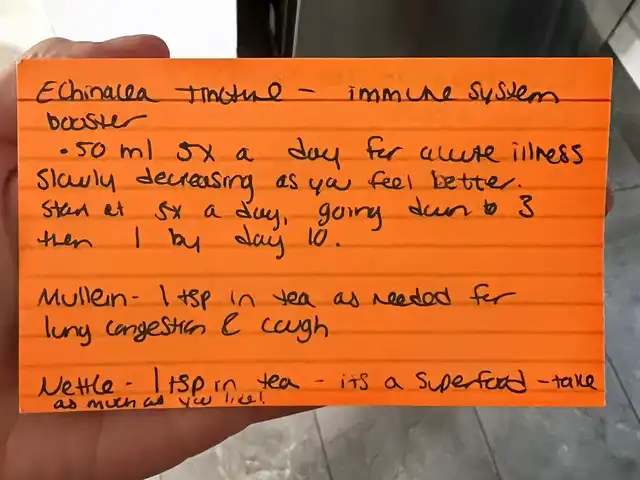 Echinacea tincture - immune system
booster
• 50 ml 5x a day for acute illness
slowly decreasing as you feel better.
Start at 5x a day, going down to 3
then 1 by day 10.
Mullein - 1 tsp in tea as needed for
lung congestion & cough
Nettle - 1 tsp in tea - its a superfood - take
as much as you like!